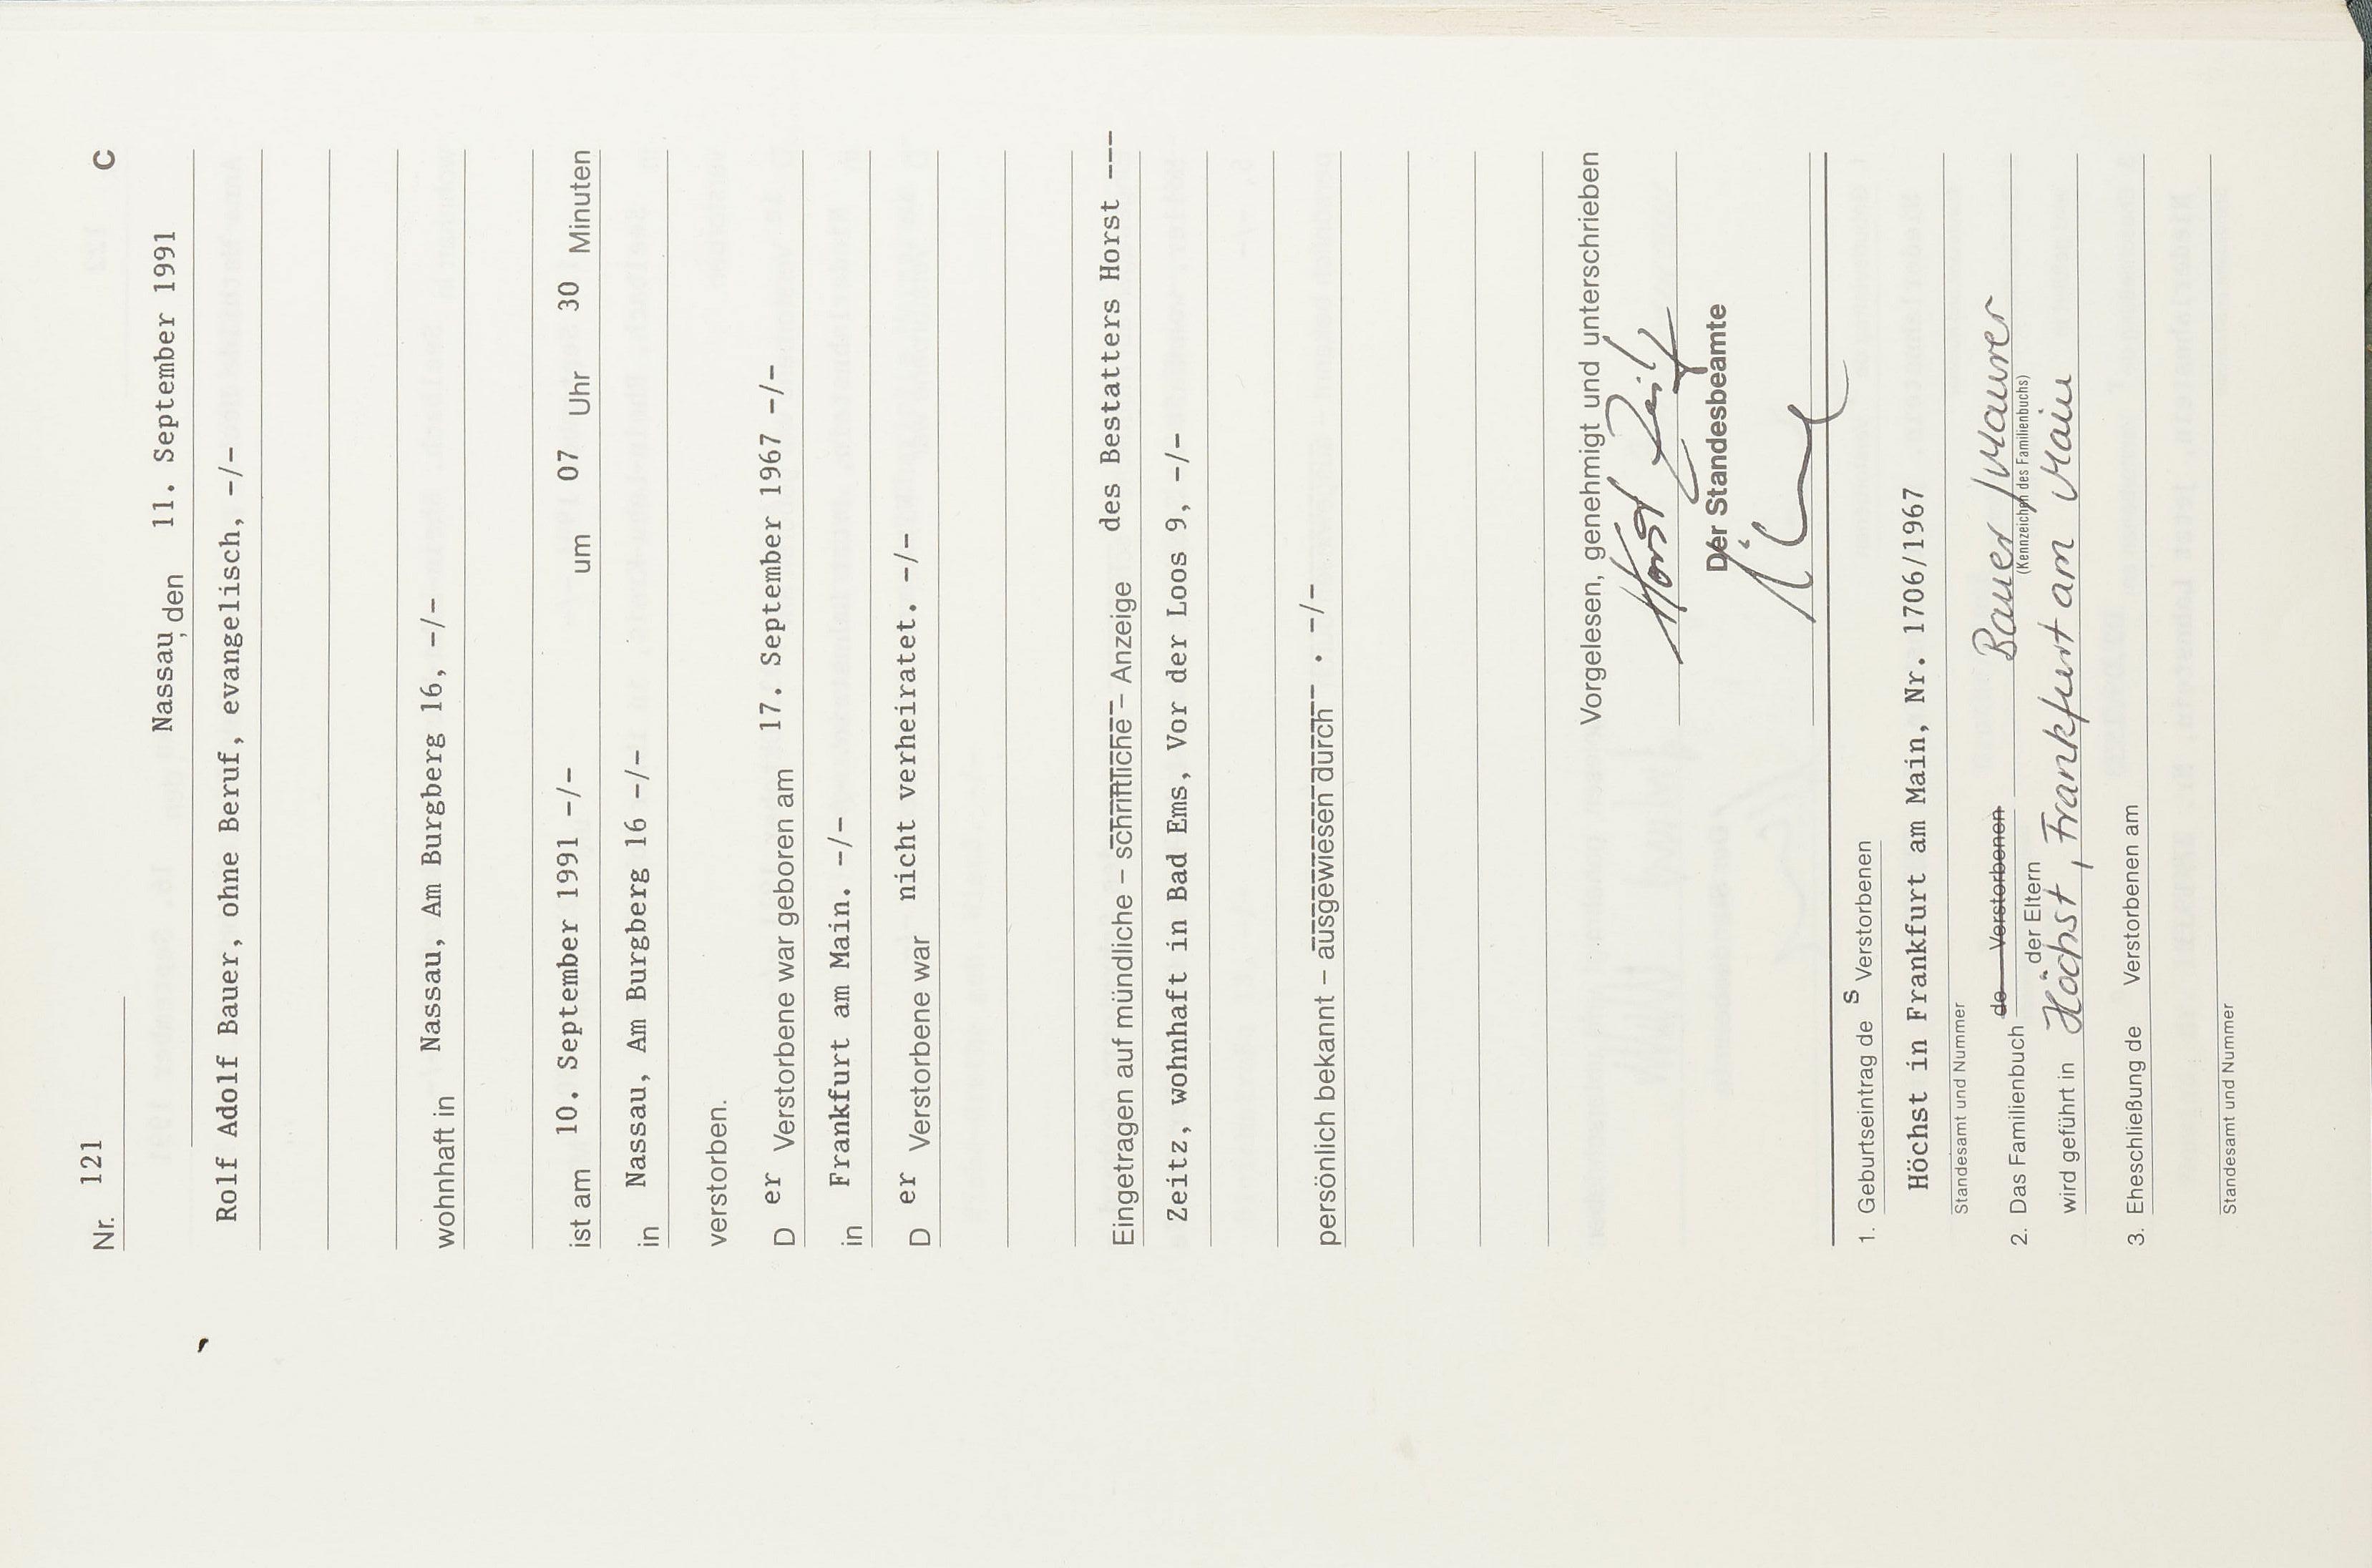 Nr. 121 C
Nassau, den 11. September 1991
Rolf Adolf Bauer, ohne Beruf, evangelisch, -/-
wohnhaft in Nassau, Am Burgberg 16, -/-
ist am 10. September 1991 -/- um 07 Uhr 30 Minuten
in Nassau, Am Burgberg 16 -/-
verstorben.
Der Verstorbene war geboren am 17. September 1967 -/-
in Frankfurt am Main. -/-
Der Verstorbene war nicht verheiratet. -/-
Eingetragen auf mündliche – schriftliche – Anzeige des Bestatters Horst ---
Zeitz, wohnhaft in Bad Ems, Vor der Loos 9, -/-
persönlich bekannt – ausgewiesen durch . -/-
Vorgelesen, genehmigt und unterschrieben
Horst
Der Standesbeamte
1. Geburtseintrag des Verstorbenen
Höchst in Frankfurt am Main, Nr. 1706/1967
Standesamt und Nummer
2. Das Familienbuch de Verstorbenen Bauer / Maurer
der Eltern (Kennzeichen des Familienbuchs)
wird geführt in Höchst, Frankfurt am Main
3. Eheschließung de Verstorbenen am
Standesamt und Nummer